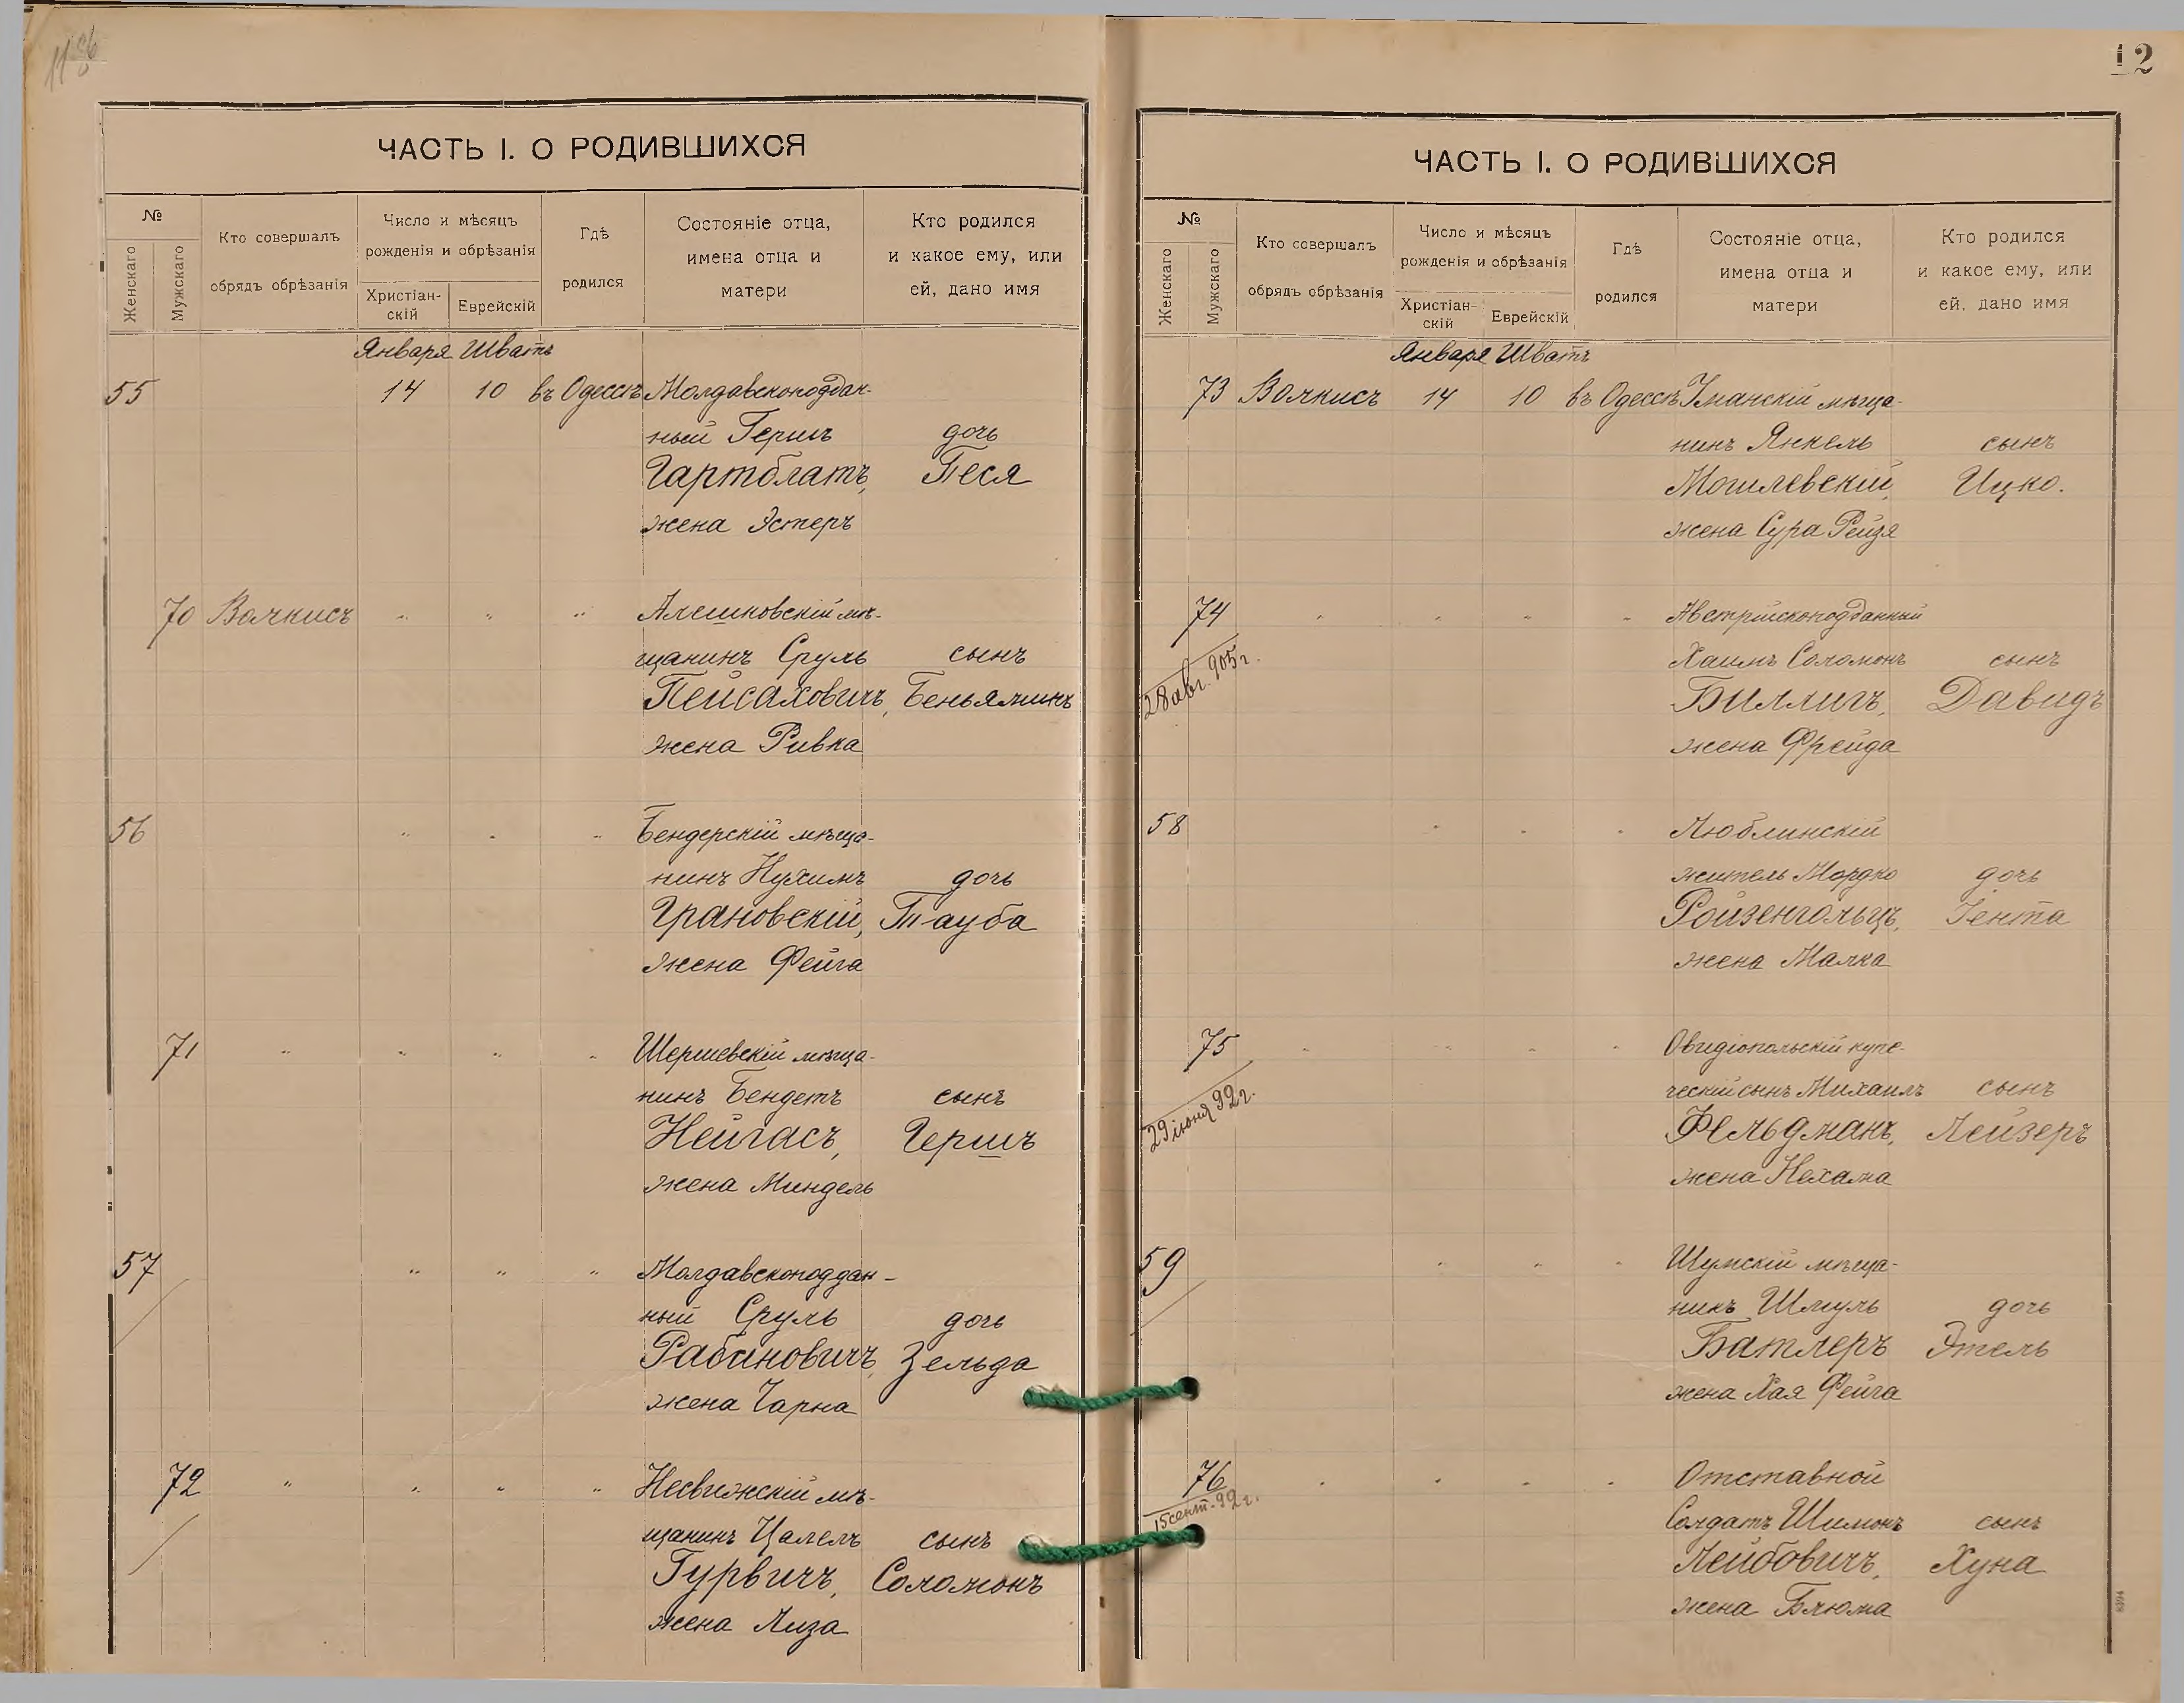 12
ЧАСТЬ I. О РОДИВШИХСЯ
№
Женскаго
Мужскаго
Кто совершалъ
обрядъ обрѣзанія
Число и мѣсяцъ
рожденія и обрѣзанія
Христіан-
скій
Еврейскій
Гдѣ
родился
Состояніе отца,
имена отца и
матери
Кто родился
и какое ему, или
ей, дано имя
Января Шватъ
55 14 10 въ Одессѣ Молдавскоподдан-
ный Гершъ дочь
Гартблатъ, Песя
жена Эстеръ
70 Волкисъ " " " Алешковскій мѣ-
щанинъ Сруль сынъ
Пейсаховичъ, Беньяминъ
жена Ривка
56 " " " Бендерскій мѣща-
нинъ Нухимъ дочь
Грановскій, Тауба
жена Фейга
71 " " " " Шершевскій мѣща-
нинъ Бендетъ сынъ
Нейгасъ, Гершъ
жена Миндель
57 " " " Молдавскоподдан-
ный Сруль дочь
Рабиновичъ, Зельда
жена Чарна
72 " " " " Несвижскій мѣ-
щанинъ Цалелъ сынъ
Гурвичъ, Соломонъ
жена Лиза
ЧАСТЬ I. О РОДИВШИХСЯ
№
Женскаго
Мужскаго
Кто совершалъ
обрядъ обрѣзанія
Число и мѣсяцъ
рожденія и обрѣзанія
Христіан-
скій
Еврейскій
Гдѣ
родился
Состояніе отца,
имена отца и
матери
Кто родился
и какое ему, или
ей, дано имя
Января Шватъ
73 Волкисъ 14 10 въ Одессѣ Уманскій мѣща-
нинъ Янкель сынъ
Могилевскій, Ицко.
жена Сура Рейзя
74 " " " " Австрійскоподданный
28 авг. 905 г.
Хаимъ Соломонъ сынъ
Биллигъ, Давидъ
жена Фрейда
58 " " " Люблинскій
житель Мордко дочь
Ройзенгольцъ, Гента
жена Малка
75 " " " " Овидіопольскій купе-
29 іюня 92 г.
ческій сынъ Михаилъ сынъ
Фельдманъ, Лейзеръ
жена Нехама
59 " " " Шумскій мѣща-
нинъ Шмуль дочь
Батлеръ Этель
жена Хая Фейга
76 " " " " Отставной
15 сент. 92 г.
Солдатъ Шимонъ сынъ
Лейбовичъ, Хуна
жена Блюма